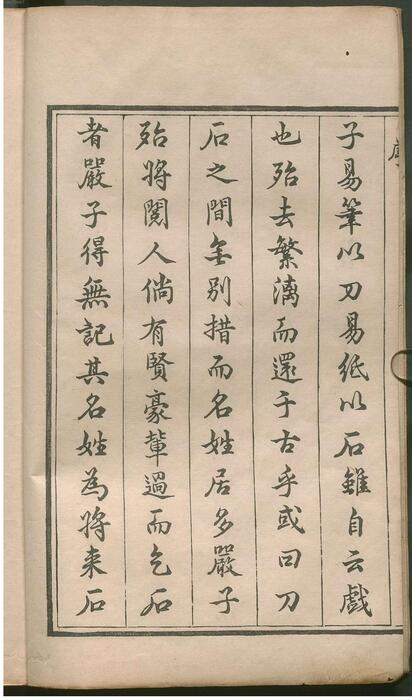 子易筆以刀易紙以石雖自云戲
也殆去繁漓而還于古乎或曰刀
石之間無別措而名姓居多嚴子
殆將閱人倘有賢豪輩過而乞石
者嚴子得無記其名姓為將來石